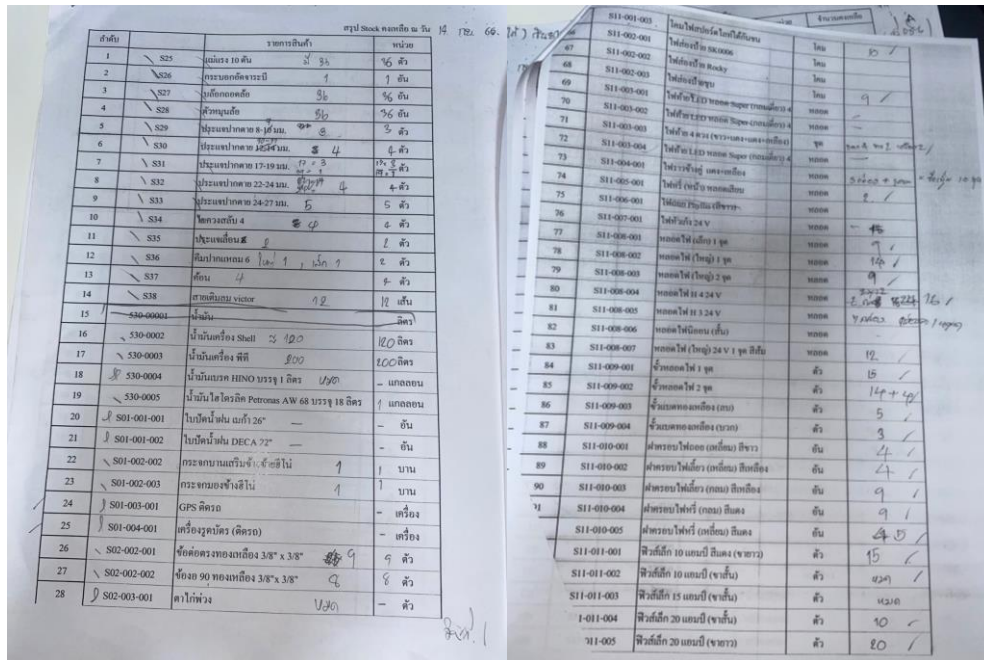 สรุป Stock คงเหลือ ณ วัน 14 กย 66.
ลำดับ รายการสินค้า หน่วย
1 S25 แม่แรง 10 ตัน 36 36 ตัว
2 S26 กระบอกอัดจาระบี 1 1 อัน
3 S27 บล๊อกถอดล้อ 36 36 อัน
4 S28 ตัวหมุนล้อ 36 36 อัน
5 S29 ประแจปากตาย 8- มม. 3 3 ตัว
6 S30 ประแจปากตาย มม. 4 4 ตัว
7 S31 ประแจปากตาย 17-19 มม. 17 = 3 ตัว
8 S32 ประแจปากตาย 22-24 มม. 4 4 ตัว
9 S33 ประแจปากตาย 24-27 มม. 5 5 ตัว
10 S34 ไขควงสลับ 4 4 4 ตัว
11 S35 ประแจเลื่อน 2 2 ตัว
12 S36 คีมปากแหลม 6 ใหญ่ 1 , เล็ก 1 2 ตัว
13 S37 ค้อน 4 4 ตัว
14 S38 สายเติมลม victor 12 12 เส้น
15 530-00001 น้ำมัน ลิตร
16 530-0002 น้ำมันเครื่อง Shell 120 120 ลิตร
17 530-0003 น้ำมันเครื่อง พีที 200 200 ลิตร
18 530-0004 น้ำมันเบรค HINO บรรจุ 1 ลิตร หมด - แกลลอน
19 530-0005 น้ำมันไฮโดรลิค Petronas AW 68 บรรจุ 18 ลิตร 1 แกลลอน
20 S01-001-001 ใบปัดน้ำฝน เมก้า 26" — - อัน
21 S01-001-002 ใบปัดน้ำฝน DECA 22" — - อัน
22 S01-002-002 กระจกบานเสริมข้างซ้ายฮีโน่ 1 1 บาน
23 S01-002-003 กระจกมองข้างฮีโน่ 1 1 บาน
24 S01-003-001 GPS ติดรถ - เครื่อง
25 S01-004-001 เครื่องรูดบัตร (ติดรถ) - เครื่อง
26 S02-002-001 ข้อต่อตรงทองเหลือง 3/8" x 3/8" 9 9 ตัว
27 S02-002-002 ข้องอ 90 ทองเหลือง 3/8"x 3/8" 8 8 ตัว
28 S02-003-001 ตาไก่พ่วง หมด - ตัว
จำนวนคงเหลือ
S11-001-003 โคมไฟสปอร์ตไลท์ใต้กันชน โคม 10
67 S11-002-001 ไฟส่องป้าย SK0006 โคม
68 S11-002-002 ไฟส่องป้าย Rocky โคม
69 S11-002-003 ไฟส่องป้ายชุบ โคม 9
70 S11-003-001 ไฟท้าย LED หลอด Super (กลมเดี่ยว) 4 หลอด
71 S11-003-002 ไฟท้าย LED หลอด Super (กลมเดี่ยว) 4 หลอด
72 S11-003-003 ไฟท้าย 4 ดวง (ขาว+แดง+แดง+เหลือง) ชุด
73 S11-003-004 ไฟท้าย LED หลอด Super (กลมเดี่ยว) 4 หลอด
74 S11-004-001 ไฟราวข้างตู้ แดง+เหลือง หลอด
75 S11-005-001 ไฟหรี่ (หน้า) หลอดเสียบ หลอด 2
76 S11-006-001 หลอด
77 S11-007-001 ไฟหัวเก๋ง 24 V หลอด
78 S11-008-001 หลอดไฟ (เล็ก) 1 จุด หลอด 9
79 S11-008-002 หลอดไฟ (ใหญ่) 1 จุด หลอด 14
80 S11-008-003 หลอดไฟ (ใหญ่) 2 จุด หลอด 9
81 S11-008-004 หลอดไฟ H 4 24 V หลอด
82 S11-008-005 หลอดไฟ H 3 24 V หลอด
83 S11-008-006 หลอดไฟนีออน (สั้น) หลอด
84 S11-008-007 หลอดไฟ (ใหญ่) 24 V 1 จุด สีส้ม หลอด 12
85 S11-009-001 ขั้วหลอดไฟ 1 จุด ตัว 15
86 S11-009-002 ขั้วหลอดไฟ 2 จุด ตัว 14 + 4
87 S11-009-003 ขั้วแบตทองเหลือง (ลบ) ตัว 5
88 S11-009-004 ขั้วแบตทองเหลือง (บวก) ตัว 3
89 S11-010-001 ฝาครอบไฟถอย (เหลี่ยม) สีขาว อัน 4
90 S11-010-002 ฝาครอบไฟเลี้ยว (เหลี่ยม) สีเหลือง อัน 4
S11-010-003 ฝาครอบไฟเลี้ยว (กลม) สีเหลือง อัน 9
S11-010-004 ฝาครอบไฟหรี่ (กลม) สีแดง อัน 9
S11-010-005 ฝาครอบไฟหรี่ (เหลี่ยม) สีแดง อัน 5
S11-011-001 ฟิวส์เล็ก 10 แอมป์ สีแดง (ขายาว) ตัว 15
S11-011-002 ฟิวส์เล็ก 10 แอมป์ (ขาสั้น) ตัว หมด
S11-011-003 ฟิวส์เล็ก 15 แอมป์ (ขาสั้น) ตัว หมด
1-011-004 ฟิวส์เล็ก 20 แอมป์ (ขาสั้น) ตัว 10
011-005 ฟิวส์เล็ก 20 แอมป์ (ขายาว) ตัว 20